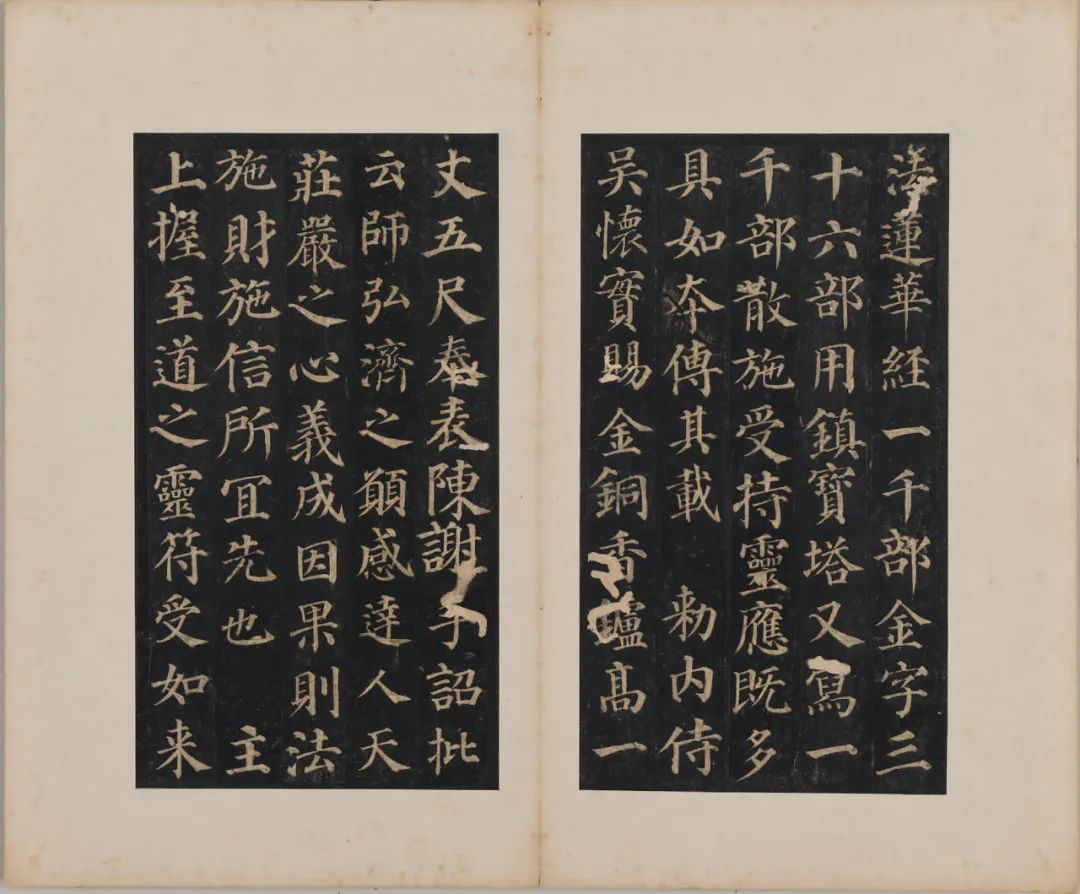 法蓮華經一千部金字三
十六部用鎮寶塔又寫一
千部散施受持靈應既多
具如夲傳其載 勅内侍
吳懷實賜金銅香爐髙一
丈五尺奉表陳謝手詔批
云師弘濟之願感達人天
莊嚴之心義成因果則法
施財施信所冝先也 主
上握至道之靈符受如来